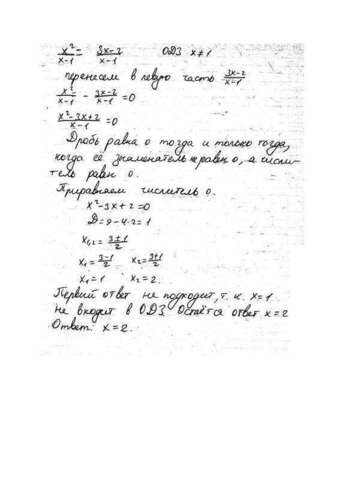 x²/x-1 = 3x-2/x-1 ОДЗ x≠1
перенесем в левую часть 3x-2/x-1
x²/x-1 - 3x-2/x-1 =0
x²-3x+2/x-1 =0
Дробь равна 0 тогда и только тогда,
когда её знаменатель не равен 0, а числи-
тель равен 0.
Приравняем числитель 0.
x²-3x+2=0
D=9-4·2=1
x₁,₂= 3±1/2
x₁= 3-1/2 x₂= 3+1/2
x₁=1 x₂=2.
Первый ответ не подходит, т.к. x=1
не входит в ОДЗ. Остаётся ответ x=2
Ответ: x=2.